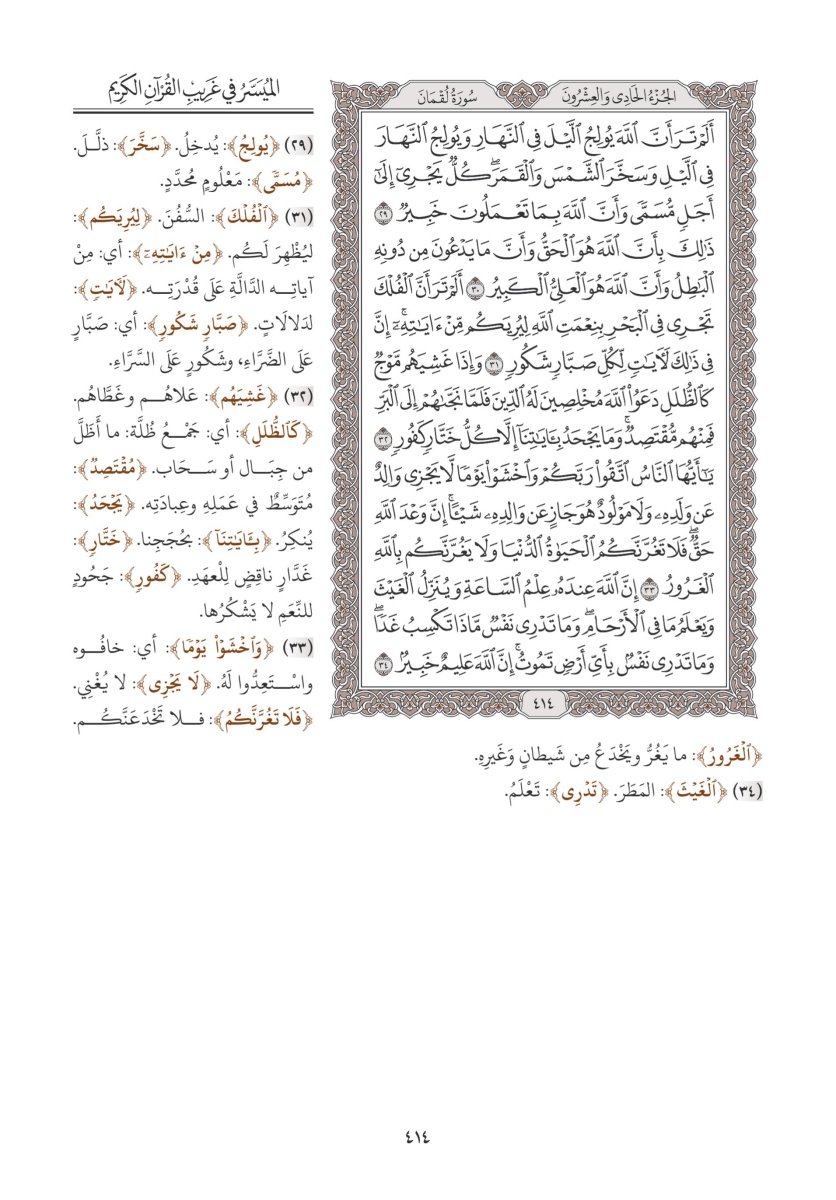 الجُزْءُ الحَادِي وَالعِشْرُونَ
سُورَةُ لُقْمَان
أَلَمۡ تَرَ أَنَّ ٱللَّهَ يُولِجُ ٱلَّيۡلَ فِي ٱلنَّهَارِ وَيُولِجُ ٱلنَّهَارَ
فِي ٱلَّيۡلِ وَسَخَّرَ ٱلشَّمۡسَ وَٱلۡقَمَرَۖ كُلّٞ يَجۡرِيٓ إِلَىٰٓ
أَجَلٖ مُّسَمّٗى وَأَنَّ ٱللَّهَ بِمَا تَعۡمَلُونَ خَبِيرٞ ٢٩
ذَٰلِكَ بِأَنَّ ٱللَّهَ هُوَ ٱلۡحَقُّ وَأَنَّ مَا يَدۡعُونَ مِن دُونِهِ
ٱلۡبَٰطِلُ وَأَنَّ ٱللَّهَ هُوَ ٱلۡعَلِيُّ ٱلۡكَبِيرُ ٣٠ أَلَمۡ تَرَ أَنَّ ٱلۡفُلۡكَ
تَجۡرِي فِي ٱلۡبَحۡرِ بِنِعۡمَتِ ٱللَّهِ لِيُرِيَكُم مِّنۡ ءَايَٰتِهِۦٓۚ إِنَّ
فِي ذَٰلِكَ لَأٓيَٰتٖ لِّكُلِّ صَبَّارٖ شَكُورٖ ٣١ وَإِذَا غَشِيَهُم مَّوۡجٞ
كَٱلظُّلَلِ دَعَوُاْ ٱللَّهَ مُخۡلِصِينَ لَهُ ٱلدِّينَ فَلَمَّا نَجَّىٰهُمۡ إِلَى ٱلۡبَرِّ
فَمِنۡهُم مُّقۡتَصِدٞۚ وَمَا يَجۡحَدُ بِـَٔايَٰتِنَآ إِلَّا كُلُّ خَتَّارٖ كَفُورٖ ٣٢
يَٰٓأَيُّهَا ٱلنَّاسُ ٱتَّقُواْ رَبَّكُمۡ وَٱخۡشَوۡاْ يَوۡمٗا لَّا يَجۡزِي وَالِدٌ
عَن وَلَدِهِۦ وَلَا مَوۡلُودٌ هُوَ جَازٍ عَن وَالِدِهِۦ شَيۡـًٔاۚ إِنَّ وَعۡدَ ٱللَّهِ
حَقّٞۖ فَلَا تَغُرَّنَّكُمُ ٱلۡحَيَوٰةُ ٱلدُّنۡيَا وَلَا يَغُرَّنَّكُم بِٱللَّهِ
ٱلۡغَرُورُ ٣٣ إِنَّ ٱللَّهَ عِندَهُۥ عِلۡمُ ٱلسَّاعَةِ وَيُنَزِّلُ ٱلۡغَيۡثَ
وَيَعۡلَمُ مَا فِي ٱلۡأَرۡحَامِۖ وَمَا تَدۡرِي نَفۡسٞ مَّاذَا تَكۡسِبُ غَدٗاۖ
وَمَا تَدۡرِي نَفۡسُۢ بِأَيِّ أَرۡضٖ تَمُوتُۚ إِنَّ ٱللَّهَ عَلِيمٌ خَبِيرُۢ ٣٤
٤١٤
المُيَسَّرُ في غَرِيبِ القُرْآنِ الكَرِيمِ
(٢٩) ﴿يُولِجُ﴾: يُدخِلُ. ﴿سَخَّرَ﴾: ذلَّلَ.
﴿مُسَمّٗى﴾: مَعْلُومٍ مُحَدَّدٍ.
(٣١) ﴿ٱلۡفُلۡكَ﴾: السُّفُنَ. ﴿لِيُرِيَكُم﴾:
ليُظْهِرَ لَكُم. ﴿مِنۡ ءَايَٰتِهِۦٓ﴾: أي: مِنْ
آياتِه الدَّالَّةِ عَلَى قُدْرَتِه. ﴿لَأٓيَٰتٖ﴾:
لدَلالَاتٍ. ﴿صَبَّارٖ شَكُورٖ﴾: أي: صَبَّارٍ
عَلَى الضَّرَّاءِ، وشَكُورٍ عَلَى السَّرَّاءِ.
(٣٢) ﴿غَشِيَهُم﴾: عَلاهُم وغَطَّاهُم.
﴿كَٱلظُّلَلِ﴾: أي: جَمْعُ ظُلَّة: ما أَظَلَّ
من جِبَال أو سَحَاب. ﴿مُقۡتَصِدٞ﴾:
مُتَوَسِّطٌ في عَمَلِهِ وعِبادَتِه. ﴿يَجۡحَدُ﴾:
يُنكِرُ. ﴿بِـَٔايَٰتِنَآ﴾: بحُجَجِنا. ﴿خَتَّارٖ﴾:
غَدَّارٍ ناقِضٍ لِلْعَهدِ. ﴿كَفُورٖ﴾: جَحُودٍ
للنِّعَمِ لا يَشْكُرُها.
(٣٣) ﴿وَٱخۡشَوۡاْ يَوۡمٗا﴾: أي: خافُوه
واسْتَعِدُّوا لَهُ. ﴿لَا يَجۡزِي﴾: لا يُغْنِي.
﴿فَلَا تَغُرَّنَّكُمُ﴾: فلا تَخْدَعَنَّكُم.
﴿ٱلۡغَرُورُ﴾: ما يَغُرُّ ويَخْدَعُ مِن شَيطانٍ وَغَيرِهِ.
(٣٤) ﴿ٱلۡغَيۡثَ﴾: المَطَرَ. ﴿تَدۡرِي﴾: تَعْلَمُ.
٤١٤